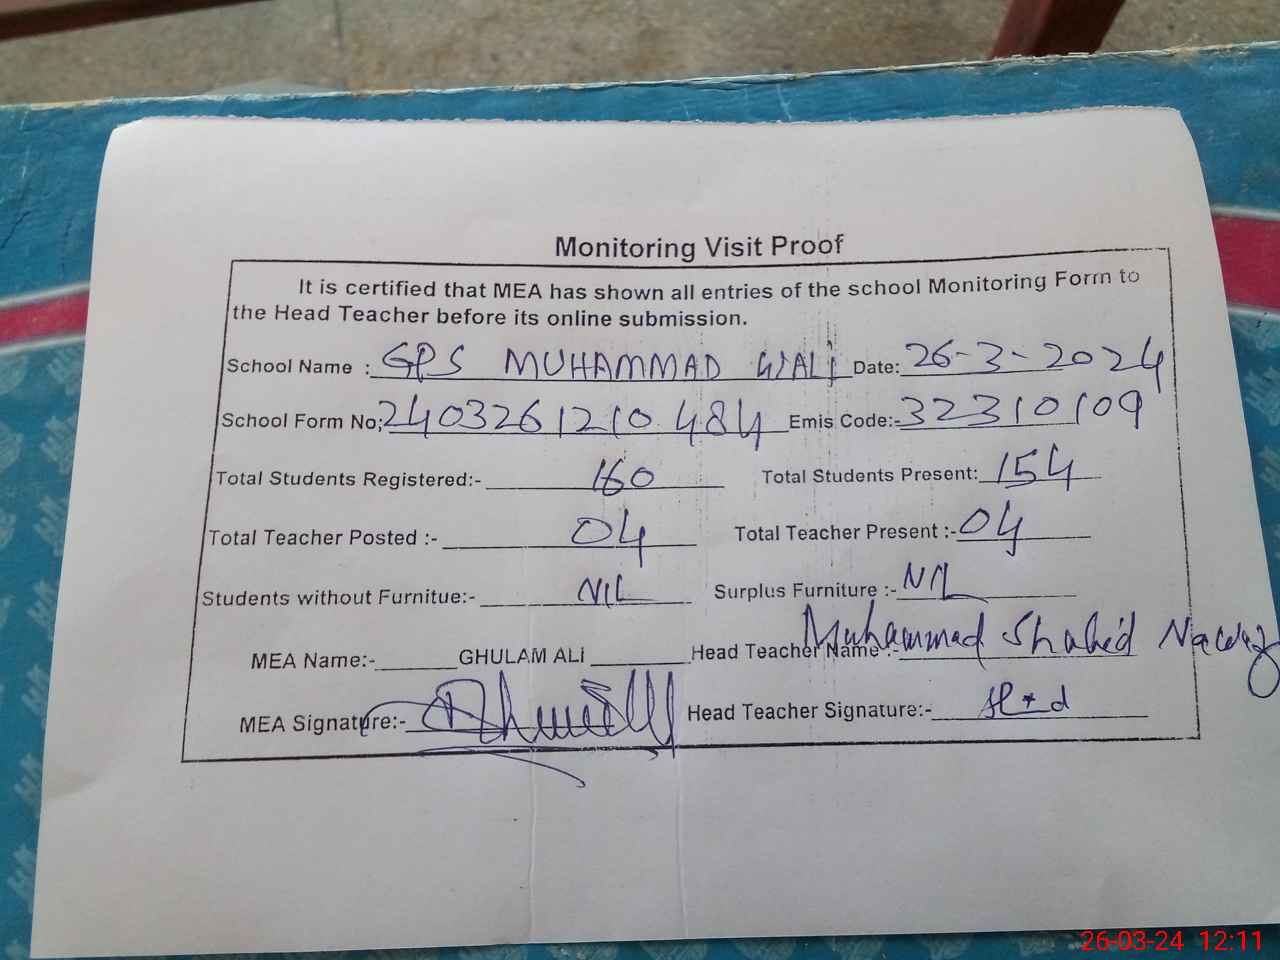 Monitoring Visit Proof
It is certified that MEA has shown all entries of the school Monitoring Form to
the Head Teacher before its online submission.
School Name : GPS MUHAMMAD WALI Date: 26-3-2024
School Form No: 2403261210484 Emis Code:- 32310109
Total Students Registered:- 160 Total Students Present: 154
Total Teacher Posted :- 04 Total Teacher Present :- 04
Students without Furnitue:- NIL Surplus Furniture :- NIL
MEA Name:- GHULAM ALI Head Teacher Name :- Muhammad Shahid Nawaz
MEA Signature:- Head Teacher Signature:-
26-03-24 12:11